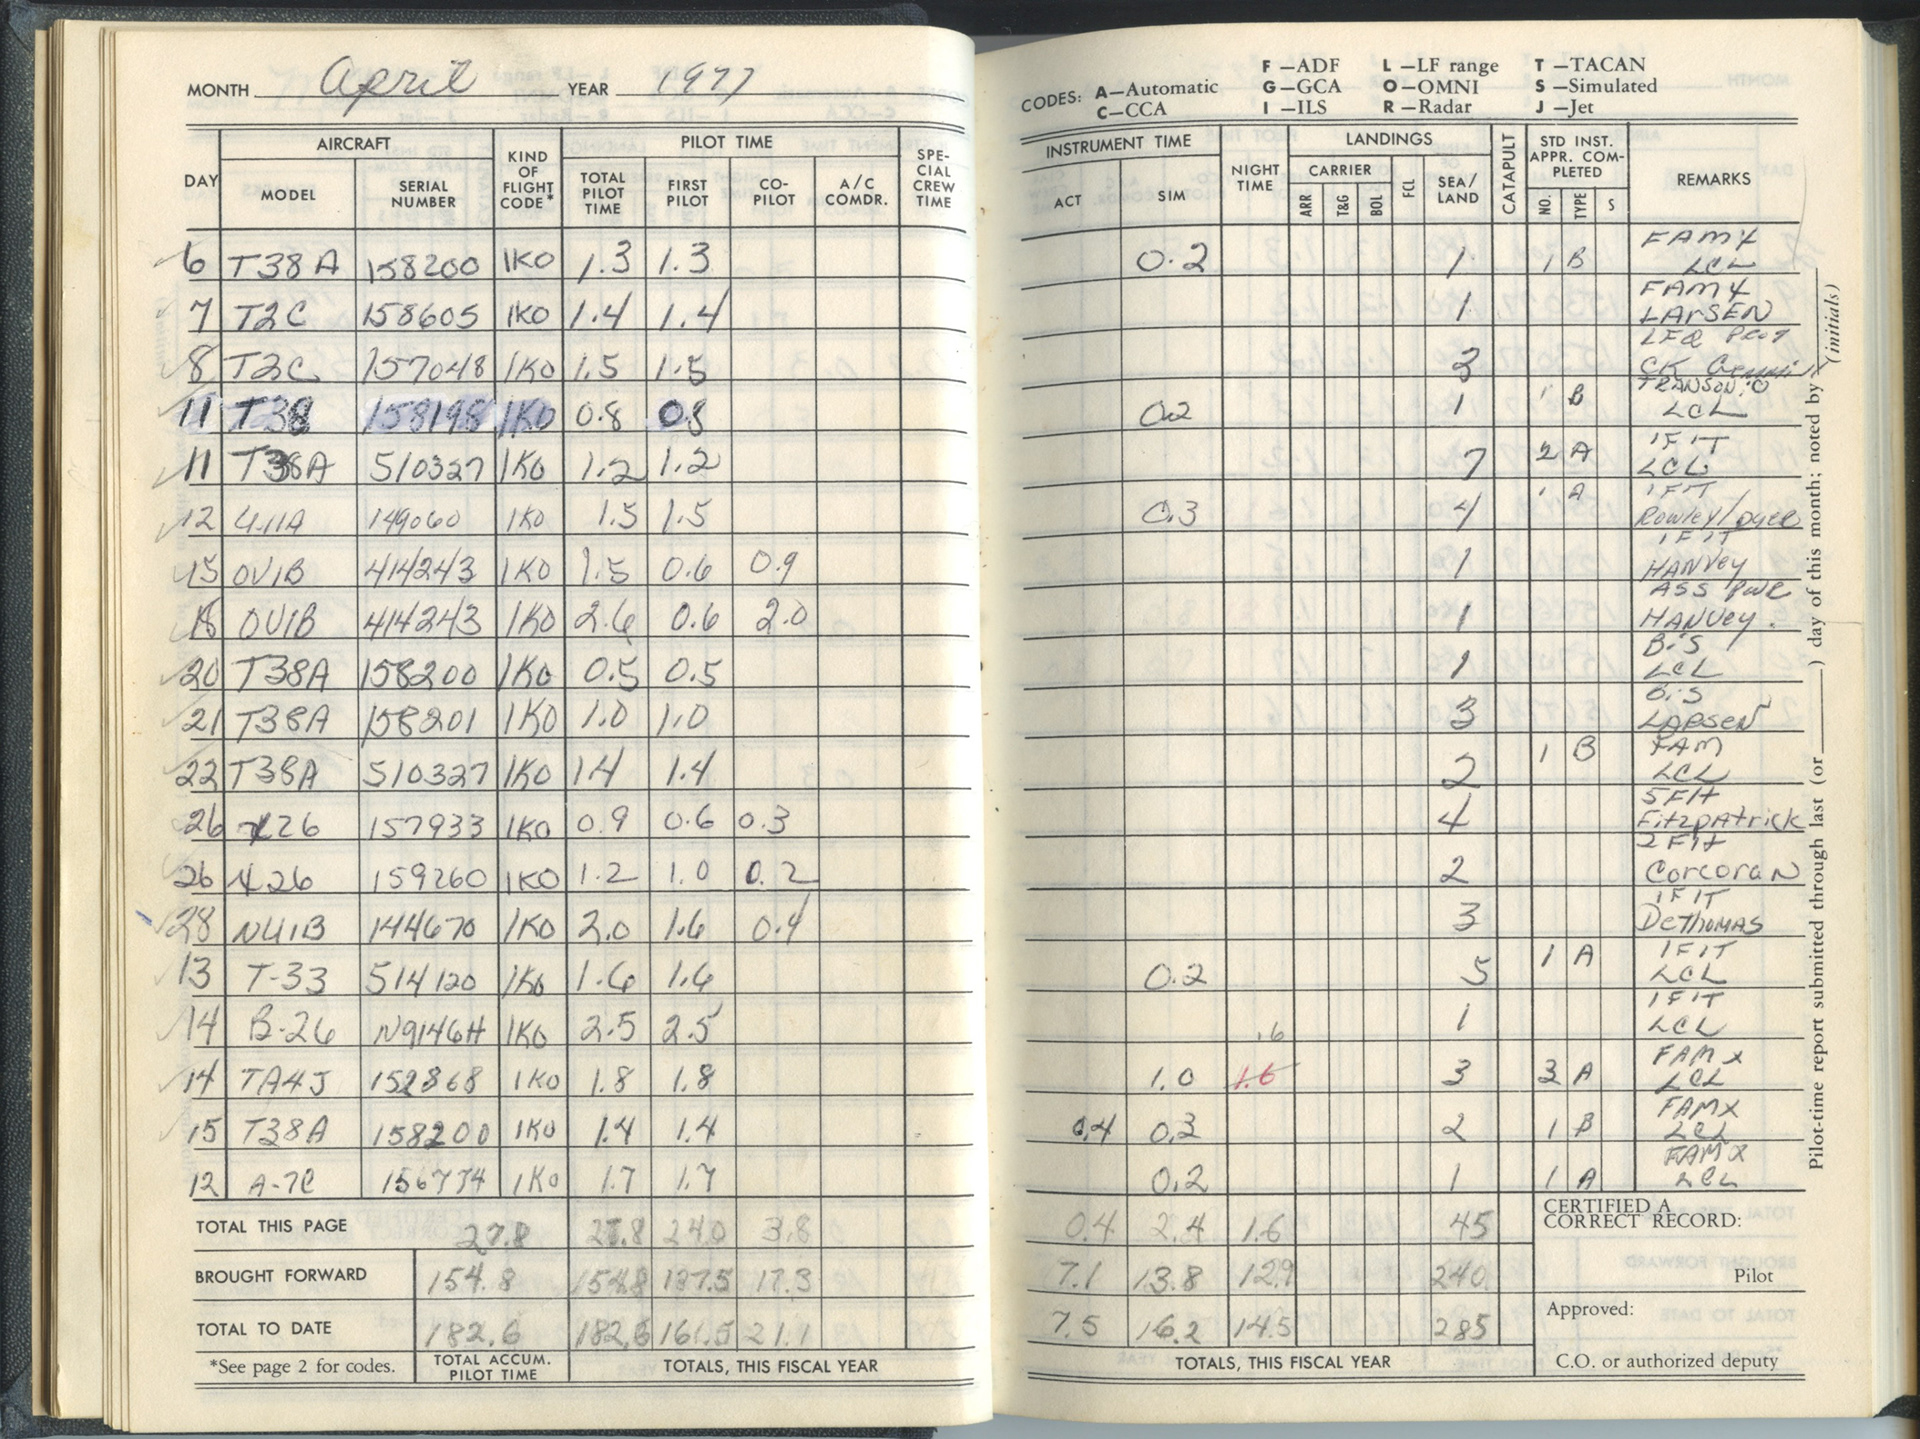 MONTH April YEAR 1977
DAY AIRCRAFT KIND OF FLIGHT CODE* PILOT TIME SPE- CIAL CREW TIME
MODEL SERIAL NUMBER TOTAL PILOT TIME FIRST PILOT CO- PILOT A/C COMDR.
6 T38A 158200 1K0 1.3 1.3
7 T2C 158605 1K0 1.4 1.4
8 T2C 157048 1K0 1.5 1.5
11 T38 158198 1K0 0.8 0.8
11 T38A 510327 1K0 1.2 1.2
12 U11A 149060 1K0 1.5 1.5
15 OV1B 414243 1K0 1.5 0.6 0.9
18 OV1B 414243 1K0 2.6 0.6 2.0
20 T38A 158200 1K0 0.5 0.5
21 T38A 158201 1K0 1.0 1.0
22 T38A 510327 1K0 14 1.4
26 X26 157933 1K0 0.9 0.6 0.3
26 X26 159260 1K0 1.2 1.0 0.2
28 NU1B 144670 1K0 2.0 1.6 0.4
13 T-33 514120 1K0 1.6 1.6
14 B-26 N9146H 1K0 2.5 2.5
14 TA4J 152868 1K0 1.8 1.8
15 T38A 158200 1K0 1.4 1.4
12 A-7C 156774 1K0 1.7 1.7
TOTAL THIS PAGE 27.8 27.8 24.0 3.8
BROUGHT FORWARD 154.8 154.8 137.5 17.3
TOTAL TO DATE 182.6 182.6 161.5 21.1
*See page 2 for codes. TOTAL ACCUM. PILOT TIME TOTALS, THIS FISCAL YEAR
CODES: A—Automatic F—ADF L—LF range T—TACAN
C—CCA G—GCA O—OMNI S—Simulated
I—ILS R—Radar J—Jet
INSTRUMENT TIME NIGHT TIME LANDINGS CATAPULT STD INST. APPR. COM- PLETED REMARKS
ACT SIM CARRIER ARR T&G BOL FCL SEA/ LAND NO. TYPE S
0.2 1 1 B FAMX LCL
1 FAMX LARSEN
3 LFQ Prof CK
0.2 1 1 B TRANSONIC LCL
7 2 A 1FIT LCL
0.3 4 1 A 1FIT Rowley/Dyer
1 1FIT HANVey
1 ASS PWR HANVey.
1 B.S LCL
3 B.S LARSEN
2 1 B FAM LCL
4 5Flt Fitzpatrick
2 2Flt Corcoran
3 1FIT DeTHOMAS
0.2 5 1 A 1FIT LCL
1 1FIT LCL
1.0 1.6 .6 3 3 A FAMX LCL
0.4 0.3 2 1 B FAMX LCL
0.2 1 1 A FAMX LCL
0.4 2.4 1.6 45 CERTIFIED A CORRECT RECORD:
7.1 13.8 12.9 240 Pilot
7.5 16.2 14.5 285 Approved:
TOTALS, THIS FISCAL YEAR C.O. or authorized deputy
Pilot-time report submitted through last (or ) day of this month; noted by (initials)